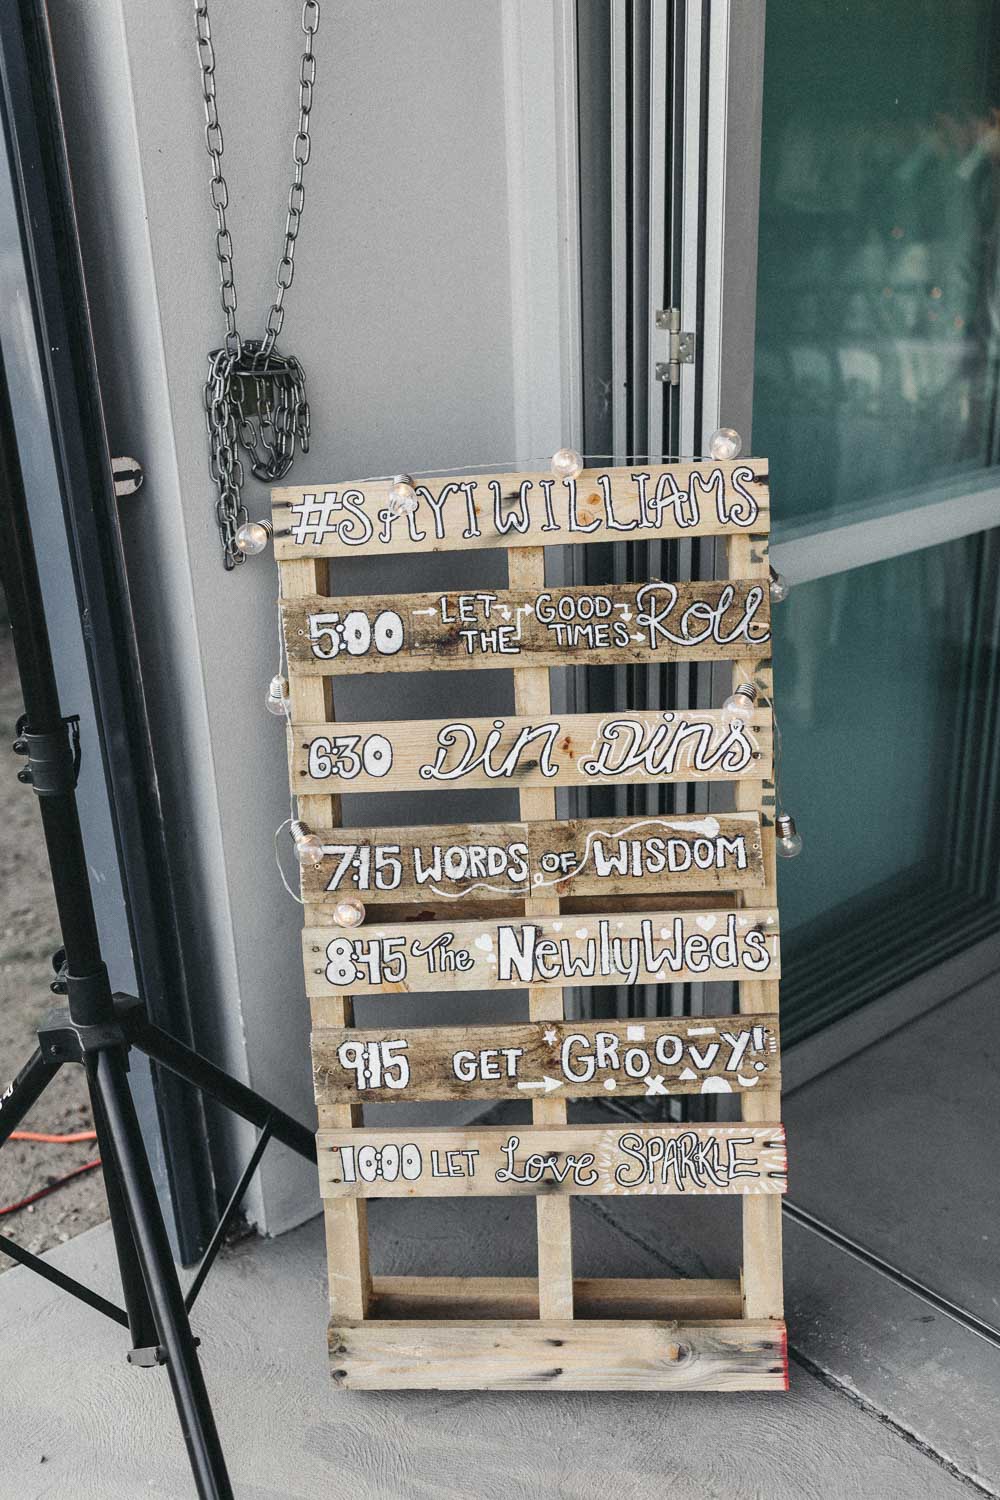 #SAYIWILLIAMS
5:00 LET THE GOOD TIMES Roll
6:30 Din Dins
7:15 WORDS OF WISDOM
8:45 The NewlyWeds
9:15 GET GROOVY!
10:00 LET Love SPARKLE